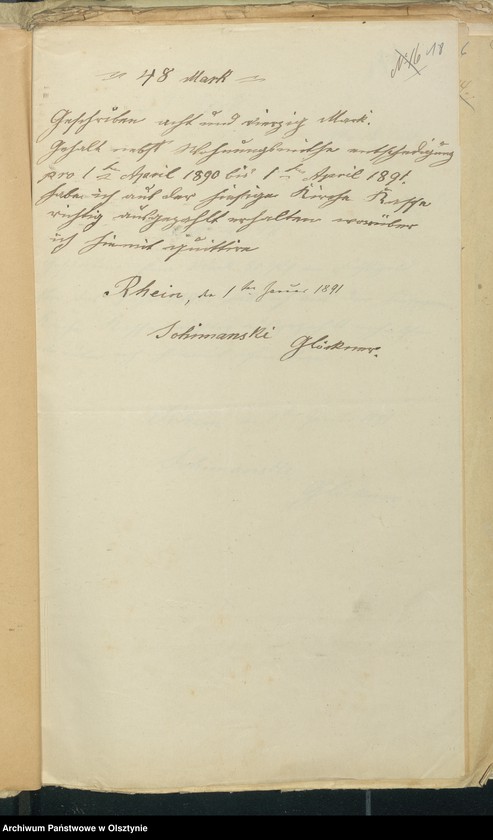 № 16 18
48 Mark
Geschrieben acht und vierzig Mark.
Gehalt nebst Wohnungsmiethe entschedigung
pro 1 ten April 1890 bis 1 ten April 1891.
habe ich aus der hiesige Kirche Kasse
richtig ausgezahlt erhalten worüber
ich hiemit quittire
Rhein, de 1 ten Januar 1891
Schimanski
Glöckner.
Archiwum Państwowe w Olsztynie